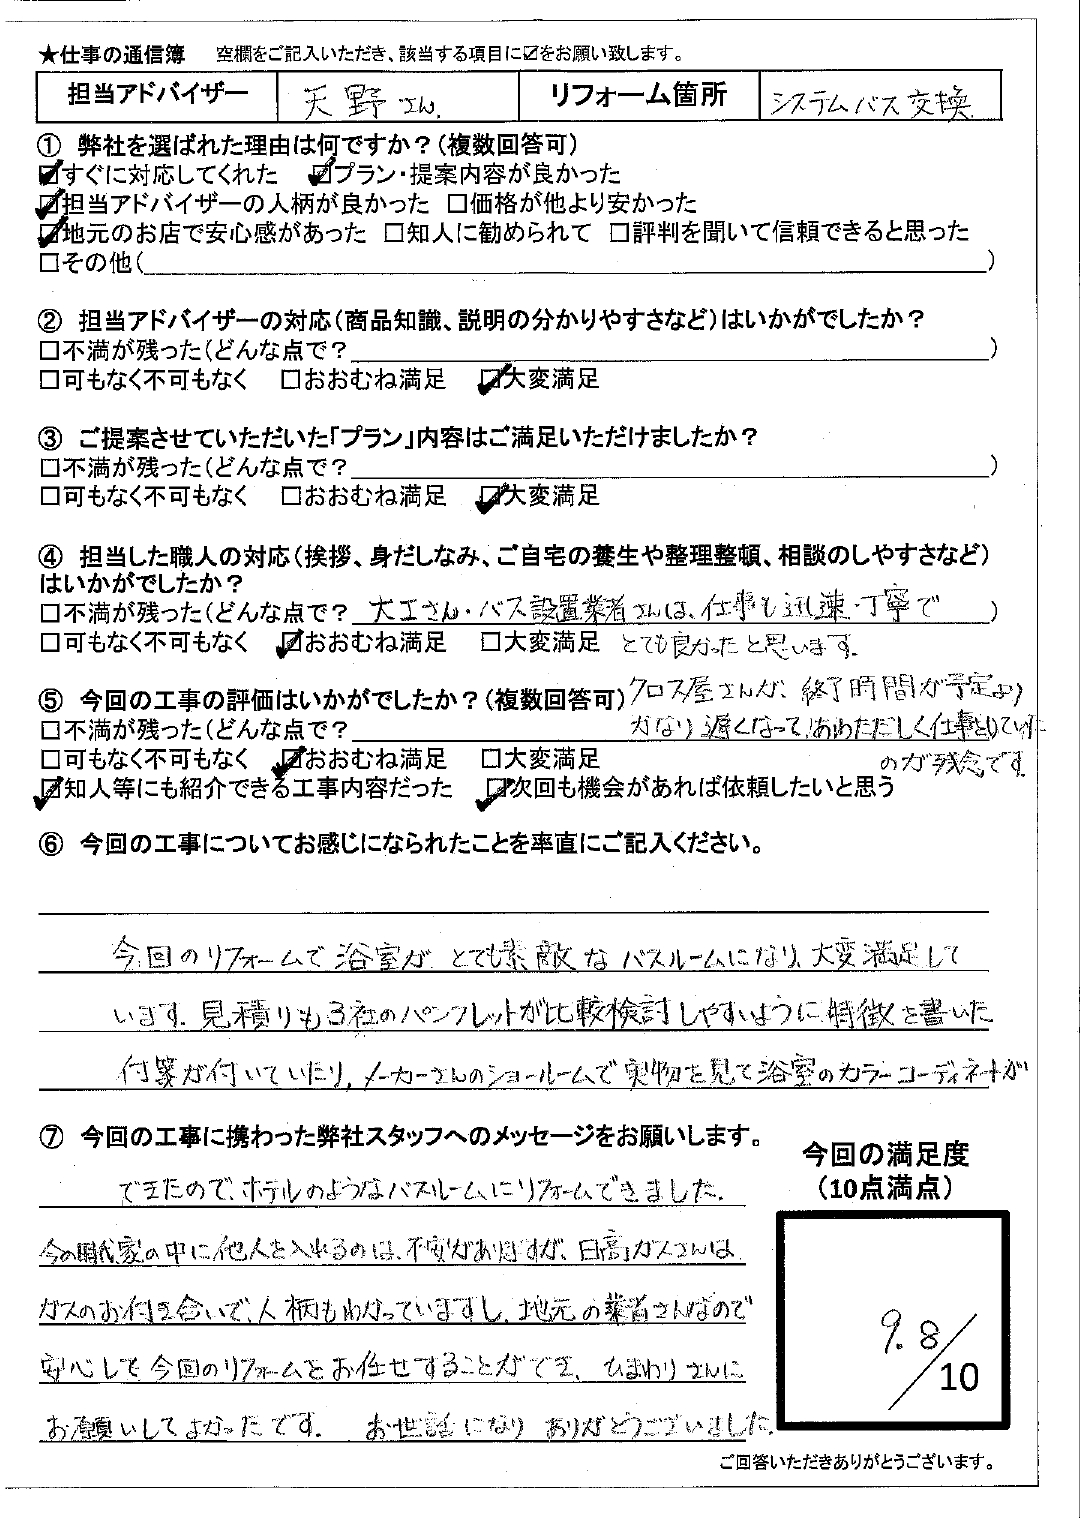 ★仕事の通信簿　空欄をご記入いただき、該当する項目に☑をお願い致します。
担当アドバイザー　天野さん.　リフォーム箇所　システムバス交換
①　弊社を選ばれた理由は何ですか？（複数回答可）
☑すぐに対応してくれた　☑プラン・提案内容が良かった
☑担当アドバイザーの人柄が良かった　□価格が他より安かった
☑地元のお店で安心感があった　□知人に勧められて　□評判を聞いて信頼できると思った
□その他（　）
②　担当アドバイザーの対応（商品知識、説明の分かりやすさなど）はいかがでしたか？
□不満が残った（どんな点で？　）
□可もなく不可もなく　□おおむね満足　☑大変満足
③　ご提案させていただいた「プラン」内容はご満足いただけましたか？
□不満が残った（どんな点で？　）
□可もなく不可もなく　□おおむね満足　☑大変満足
④　担当した職人の対応（挨拶、身だしなみ、ご自宅の養生や整理整頓、相談のしやすさなど）
はいかがでしたか？
□不満が残った（どんな点で？ 大工さん・バス設置業者さんは、仕事も迅速・丁寧で）
□可もなく不可もなく　☑おおむね満足　□大変満足　とても良かったと思います.
⑤　今回の工事の評価はいかがでしたか？（複数回答可）クロス屋さんが、終了時間が予定より
□不満が残った（どんな点で？　かなり遅くなって、あわただしく仕事をしていた
□可もなく不可もなく　☑おおむね満足　□大変満足　のが残念です.
☑知人等にも紹介できる工事内容だった　☑次回も機会があれば依頼したいと思う
⑥　今回の工事についてお感じになられたことを率直にご記入ください。
今回のリフォームで浴室がとても素敵なバスルームになり、大変満足して
います. 見積りも3社のパンフレットが比較検討しやすいように、特徴を書いた
付箋が付いていたり, メーカーさんのショールームで実物を見て浴室のカラーコーディネートが
⑦　今回の工事に携わった弊社スタッフへのメッセージをお願いします。
できたので、ホテルのようなバスルームにリフォームできました.
今の時代家の中に他人を入れるのは、不安がありますが、日高ガスさんは
ガスのお付き合いで、人柄もわかっていますし、地元の業者さんなので
安心して今回のリフォームをお任せすることができ、ひまわりさんに
お願いしてよかったです.　お世話になりありがとうございました.
今回の満足度
（10点満点）
9.8/10
ご回答いただきありがとうございます。